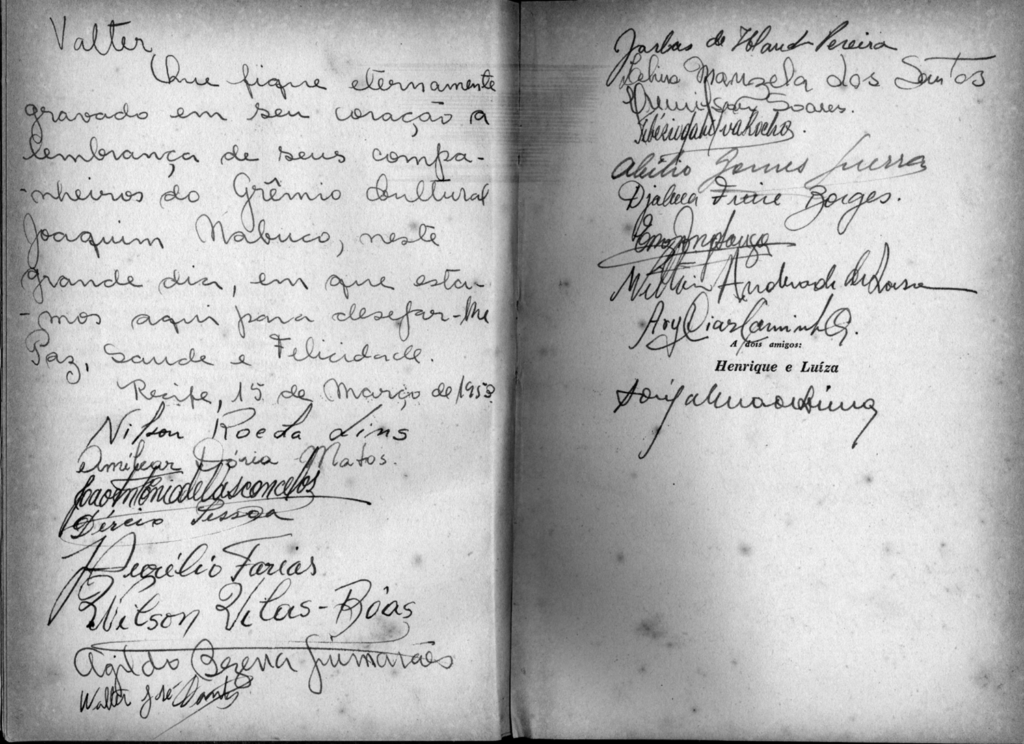 Valter,
Que fique eternamente
gravado em seu coração a
lembrança de seus compa-
-nheiros do Grêmio Cultural
Joaquim Nabuco, neste
grande dia, em que esta-
-mos aqui para desejar-lhe
Paz, Saude e Felicidade.
Recife, 15 de Março de 1953
Nilson Roeda Lins
Amilcar Dória Matos.
João Antônio de Vasconcelos
Dércio Pessoa
Aurélio Farias
Wilson Vilas-Bôas
Agildo Bezerra Guimarães
Walter José
Jarbas de Holanda Pereira
Manzela dos Santos
Soares.
Abílio Gomes Guerra
Djalma Freire Borges.
Milton Andrade de
Ary Dias Caminha
A dois amigos:
Henrique e Luíza